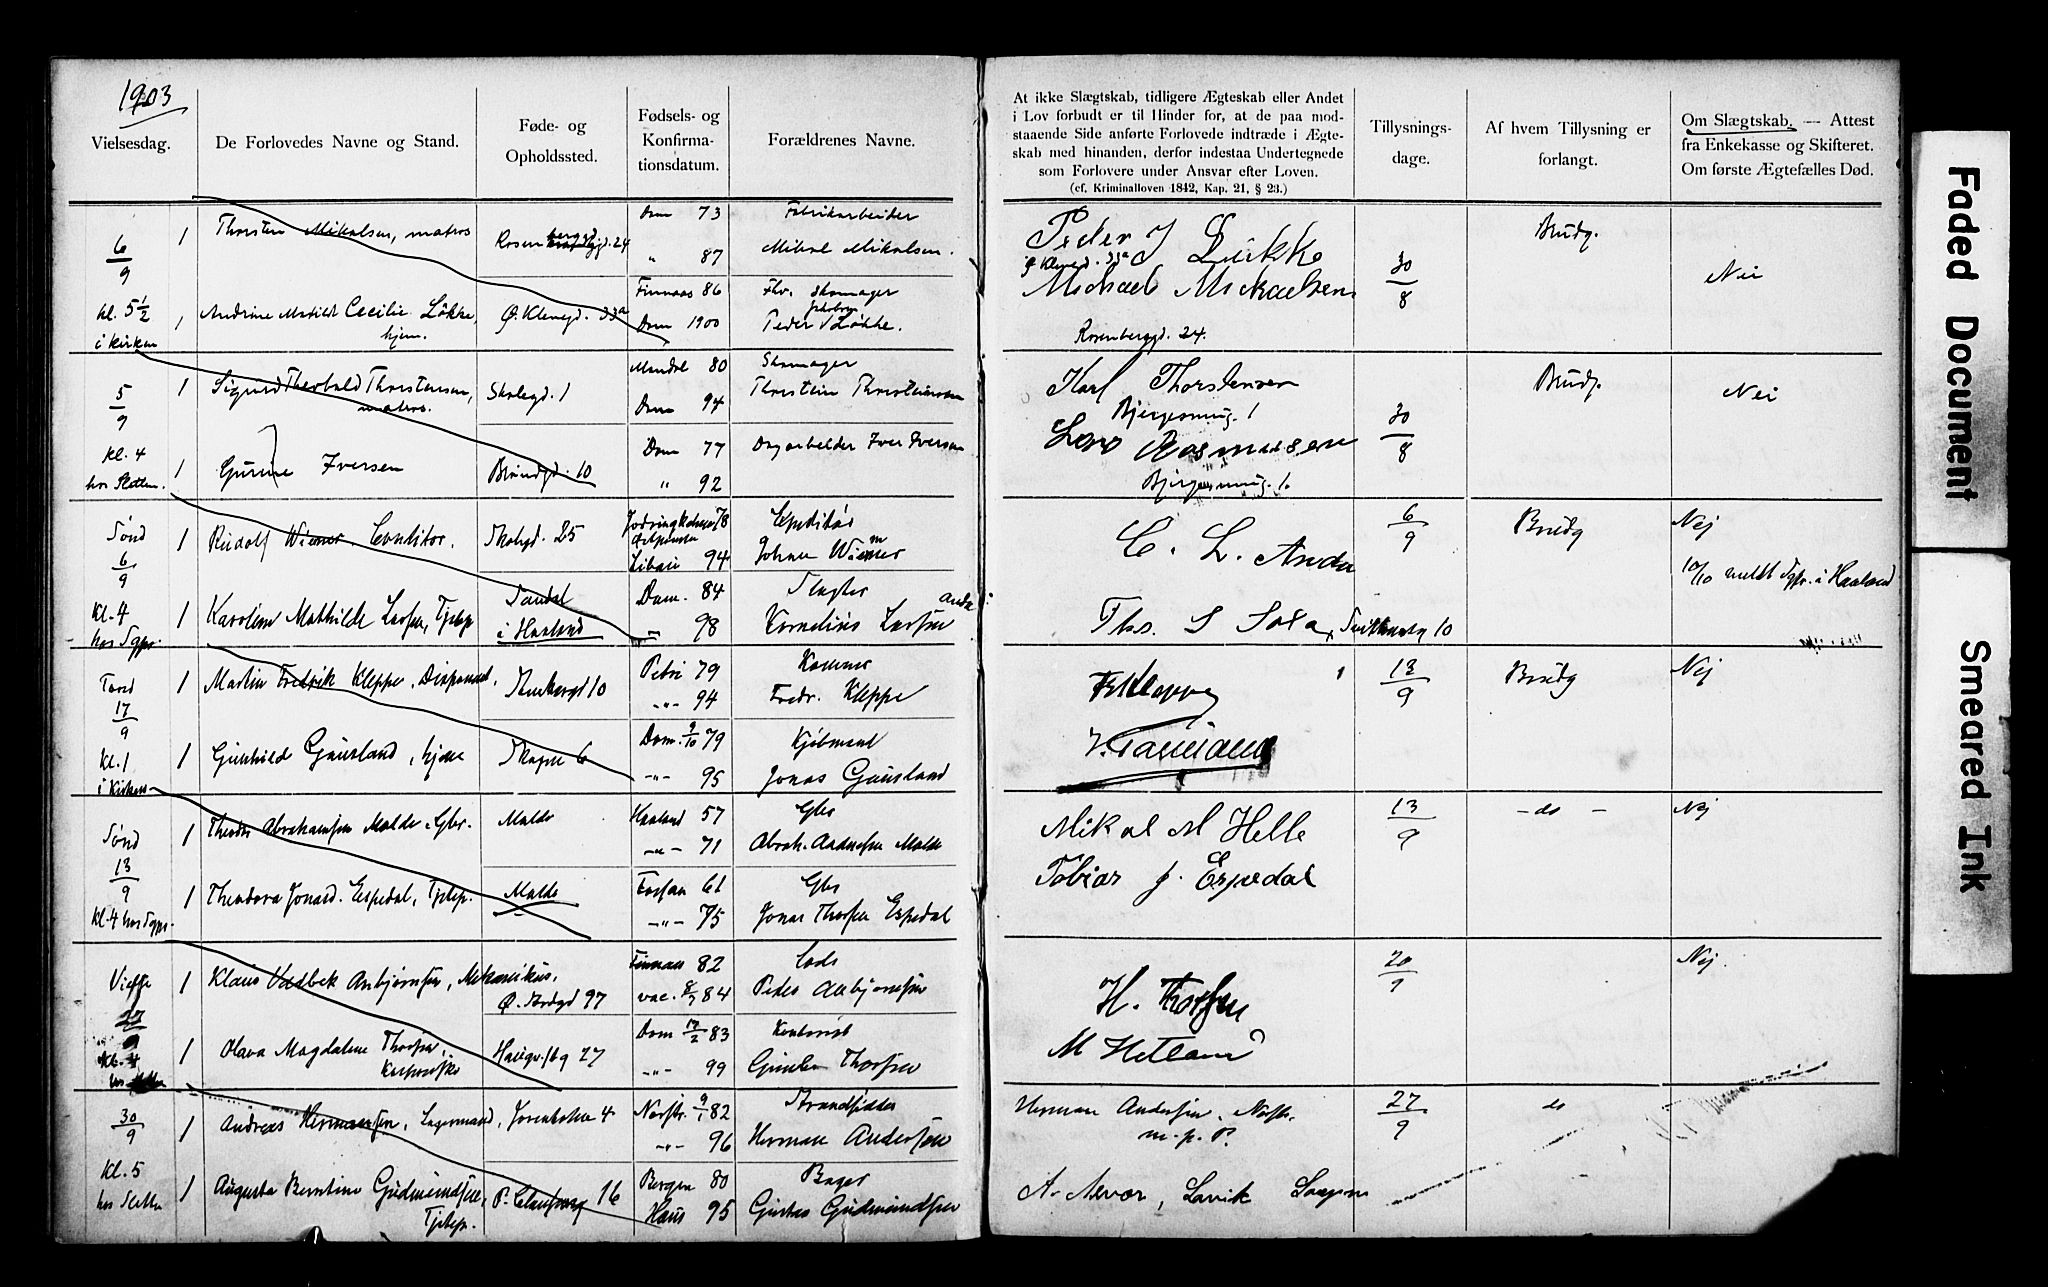 1903
Vielsesdag.
De Forlovedes Navne og Stand.
Føde- og
Opholdssted.
Fødsels- og
Konfirma-
tionsdatum.
Forældrenes Navne.
At ikke Slægtskab, tidligere Ægteskab eller Andet
i Lov forbudt er til Hinder for, at de paa mod-
staaende Side anførte Forlovede indtræde i Ægte-
skab med hinanden, derfor indestaa Undertegnede
som Forlovere under Ansvar efter Loven.
(cf. Kriminalloven 1842, Kap. 21, § 23.)
Tillysnings-
dage.
Af hvem Tillysning er
forlangt.
Om Slægtskab. — Attest
fra Enkekasse og Skifteret.
Om første Ægtefælles Død.
6/9
kl. 5 1/2
i kirken
1 Thorsten Mikalsen, matros
Rosenbergd. 24
Dom 73
" 87
Fabrikarbeider
Mikal Mikalsen.
1 Andrine Matild Cecilie Løkke,
hjem.
Ø. Klevegd. 33a
Finnaas 86
Dom 1900
Fhv. Skomager
Peder Jakobsen Løkke.
Peder J Løkke
Ø Klevegd. 33a
Michael Mickaelsen
Rosenberggd. 24.
30/8
Brudg.
Nei
5/9
kl. 4
hos Sletten.
1 Sigurd Theobald Thorstensen,
matros.
Skolegd. 1
Mandal 80
Dom 94
Skomager
Thorstein Thorsteinsen
1 Gurine Iversen
Brøndgd. 10
Dom 77
" 92
Dagarbeider Iver Iversen
Karl Thorstensen
Bjergesmug. 1
Lars Rasmussen
Bjergesmug. 1.
30/8
Brudg.
Nei
Sønd
6/9
Kl. 4
hos Sgpr.
1 Rudolf Wiemer, Conditor.
Skolegd. 25
78
Libau 94
Expeditør
Johan Wiemer
1 Karoline Mathilde Larsen, Tjtep
Tandal
i Haaland
Dom. 84
-"- 98
Slagter
Kornelius Larsen
C. L. Anda
Ths. S Sola, 10
6/9
Brudg
Nej
10/10 meldt Sgpr. i Haaland
Torsd
17/9
Kl. 1
i Kirken
1 Martin Fredrik Kleppe, Disponent.
10
Petri 79
-"- 94
Kæmner
Fredr. Kleppe
1 Gunhild Gausland, hjem
Skagen 6
Dom. 9/10 79
-"- 95
Kjøbmand
Jonas Gausland
F Kleppe
13/9
Brudg
Nej
Sønd
13/9
Kl. 4 hos Sgpr.
1 Theodor Abrahamsen Malde, Gbr.
Malde
Haaland 57
-"- 71
Gbr
Abrah. Andersen Malde
1 Theodora Jonasd. Espedal, Tjtep.
Malde
Fossan 61
-"- 75
Gbr
Jonas Thorsen Espedal
Mikal M Helle
Tobias J. Espedal
13/9
- do -
Nej
Viette
27/9
Kl. 4
1 Klaus Valdbek Anbjørnsen, Mekanikus,
Ø. Strdgd 97
Finnaas 82
vac. 8/7 84
Lods
Peder Anbjørnsen
1 Olava Magdalene Thorsen,
27
Dom 12/2 83
-"- 99
Kontorist
Gunder Thorsen
H. Thorsen
M Hetland
20/9
Nej.
30/9
Kl. 5
hos Sletten
1 Andreas Hermansen, Lagermand,
Jorenholmen 4
Norstr. 9/1 82
-"- 96
Strandsidder
Herman Andersen
1 Augusta Berntine Gudmundsen,
Tjtep.
P. Clausensg 16
Bergen 80
Haus 95
Bager
Gustav Gudmundsen
Herman Andersen, Norstr.
m. p. P.
A. Nevøs, Lavik Sogn
27/9
do
Faded Document
Smeared Ink